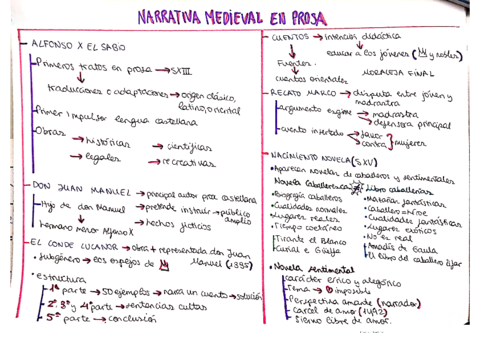 NARRATIVA MEDIEVAL EN PROSA
ALFONSO X EL SABIO
Primeros tratos en prosa → SXIII
traducciones o adaptaciones → origen clásico,
latino, oriental
Primer impulsor lengua castellana
Obras → históricas → científicas
→ legales → recreativas
DON JUAN MANUEL → principal autor prosa castellana
Hijo de don Manuel → pretende instruir → público
amplio
hermano menor Alfonso X → hechos ficticios
EL CONDE LUCANOR → obra + representada don Juan
Manuel (1335)
Subgénero → los espejos de
estructura
1ª parte → 50 ejemplos → narra un cuento → solución
2ª 3ª y 4ª parte → sentencias cultas
5ª parte → conclusión
CUENTOS → intención didáctica
educar a los jóvenes ( y nobles)
Fuentes
MORALEJA FINAL
cuentos orientales
RELATO MARCO → disputa entre joven y
madrastra
argumento esgrime → madrastra
→ defensora principal
cuento insertado → favor
→ contra } mujeres
NACIMIENTO NOVELA (SXV)
• Aparecen novelas de caballeros y sentimentales
Novela caballeresca Libro caballerías
• Biografía caballeros
• Cualidades normales
• Lugares reales
• Tiempo coetáneo
• Tirante el Blanco
• Curial e Güelfa
• Hazañas fantásticas
• Caballero = héroe
• Cualidades fantásticas
• Lugares exóticos
• No es real
• Amadís de Gaula
• El libro del caballero Zifar
• Novela sentimental
carácter lírico y alegórico
Tema → imposible
Perspectiva amante (narrador)
Cárcel de amor (1492)
Siervo libre de amor.